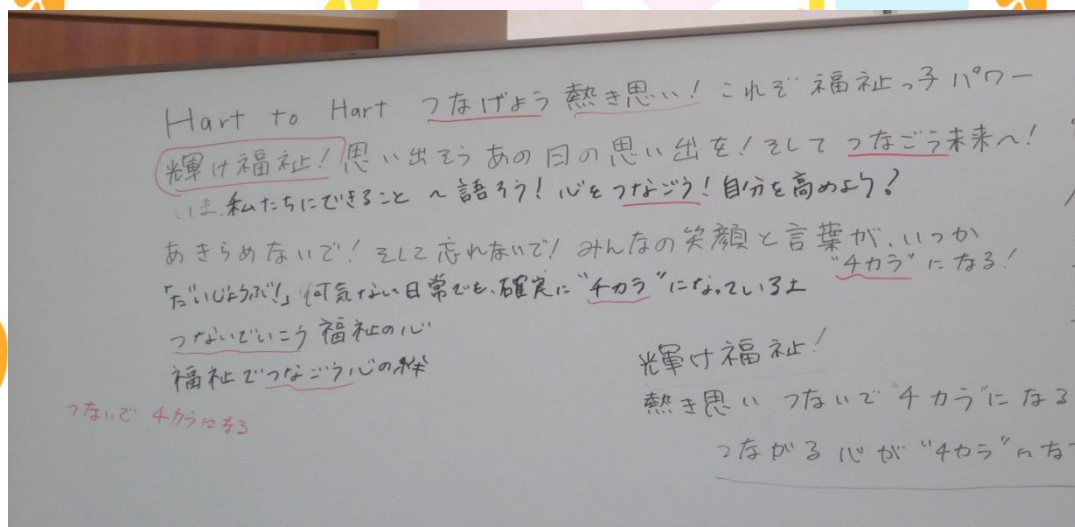 Hart to Hart つなげよう 熱き思い! これぞ 福祉っ子パワー
輝け福祉! 思い出そう あの日の思い出を! そして つなごう未来へ!
いま、私たちにできること 〜語ろう! 心をつなごう! 自分を高めよう?
あきらめないで! そして忘れないで! みんなの笑顔と言葉が、いつか
"チカラ"になる!
「だいじょうぶ!」 何気ない日常でも、確実に"チカラ"になっている
つないでいこう 福祉の心
福祉でつなごう心の絆
つないで チカラになる
輝け福祉!
熱き思い つないで"チカラ"になる
つながる 心が "チカラ"にな